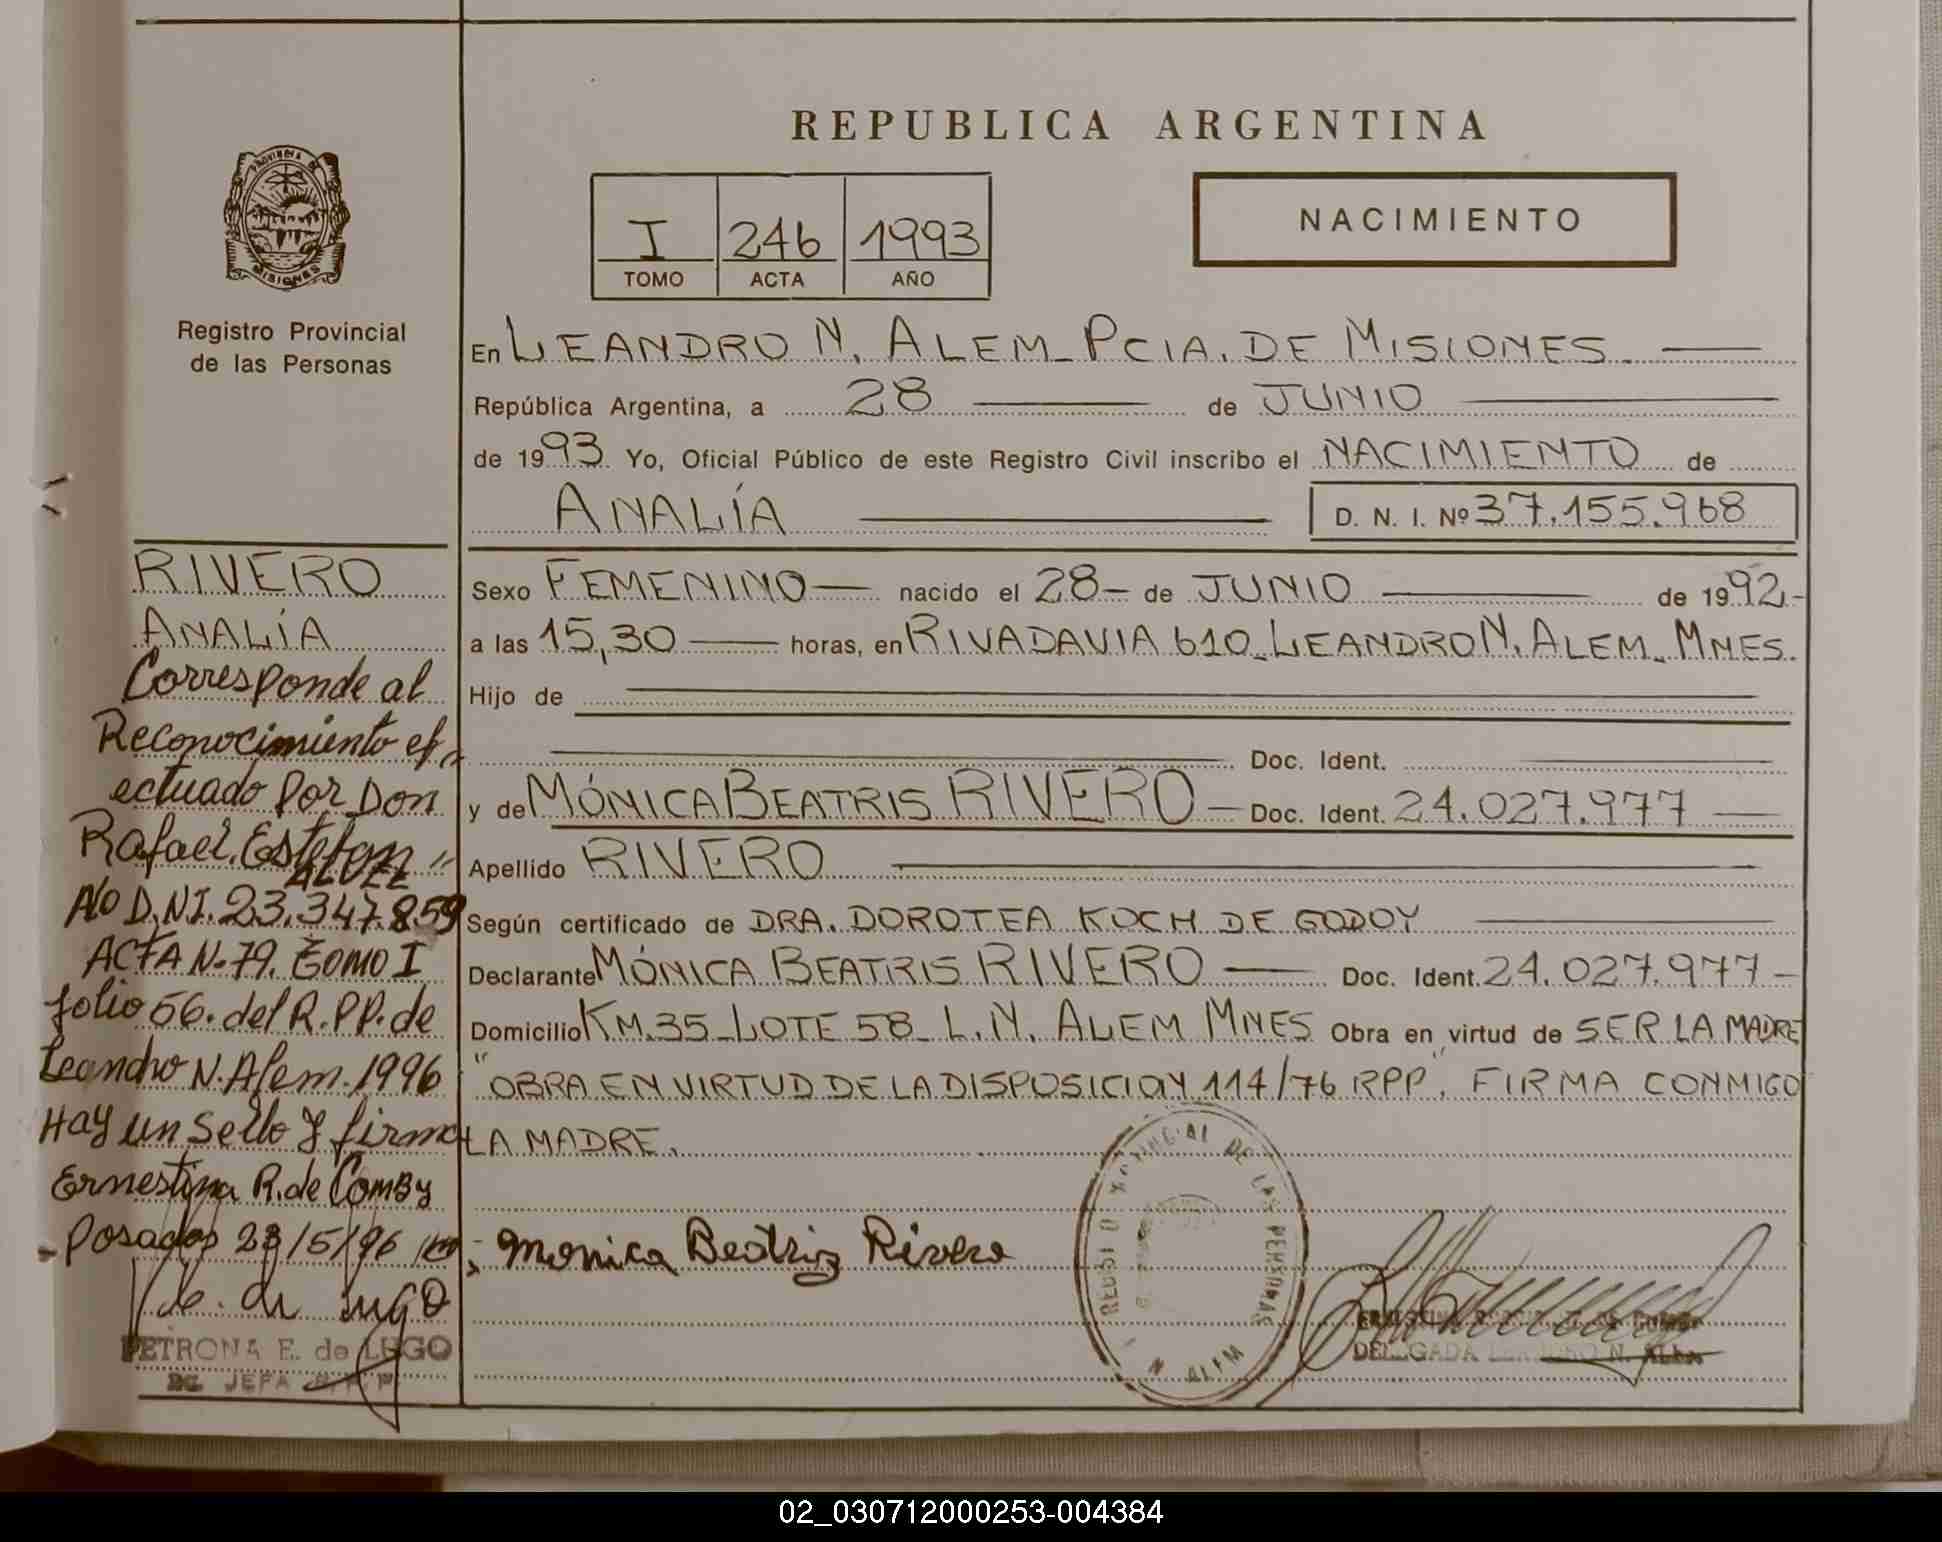 REPUBLICA ARGENTINA
PROVINCIA DE
MISIONES
Registro Provincial
de las Personas
I 246 1993
TOMO ACTA AÑO
NACIMIENTO
En LEANDRO N. ALEM - PCIA. DE MISIONES.
República Argentina, a 28 de JUNIO
de 1993 Yo, Oficial Público de este Registro Civil inscribo el NACIMIENTO de
ANALÍA
D. N. I. Nº 37.155.968
Sexo FEMENINO nacido el 28 de JUNIO de 1992
a las 15,30 horas, en RIVADAVIA 610 - LEANDRO N. ALEM - MNES.
Hijo de
Doc. Ident.
y de MÓNICA BEATRIS RIVERO Doc. Ident. 24.027.977
Apellido RIVERO
Según certificado de DRA. DOROTEA KOCH DE GODOY
Declarante MÓNICA BEATRIS RIVERO Doc. Ident. 24.027.977
Domicilio KM.35 - LOTE 58 - L. N. ALEM MNES Obra en virtud de SER LA MADRE
"OBRA EN VIRTUD DE LA DISPOSICION 114/76 RPP". FIRMA CONMIGO
LA MADRE.
Monica Beatriz Rivero
DE LAS PERSONAS
N. ALEM
DELEGADA LEANDRO N. ALEM
RIVERO
ANALÍA
Corresponde al
Reconocimiento ef
ectuado por Don
Rafael Esteban
ALVEZ
No D.N.I. 23.347.859
ACTA N-79. Tomo I
folio 56. del R.P.P. de
Leandro N. Alem. 1996
Hay un Sello y firma
Ernestina R. de Comby
Posadas 23/5/96
de Lugo
PETRONA E. de LUGO
JEFA
02_030712000253-004384